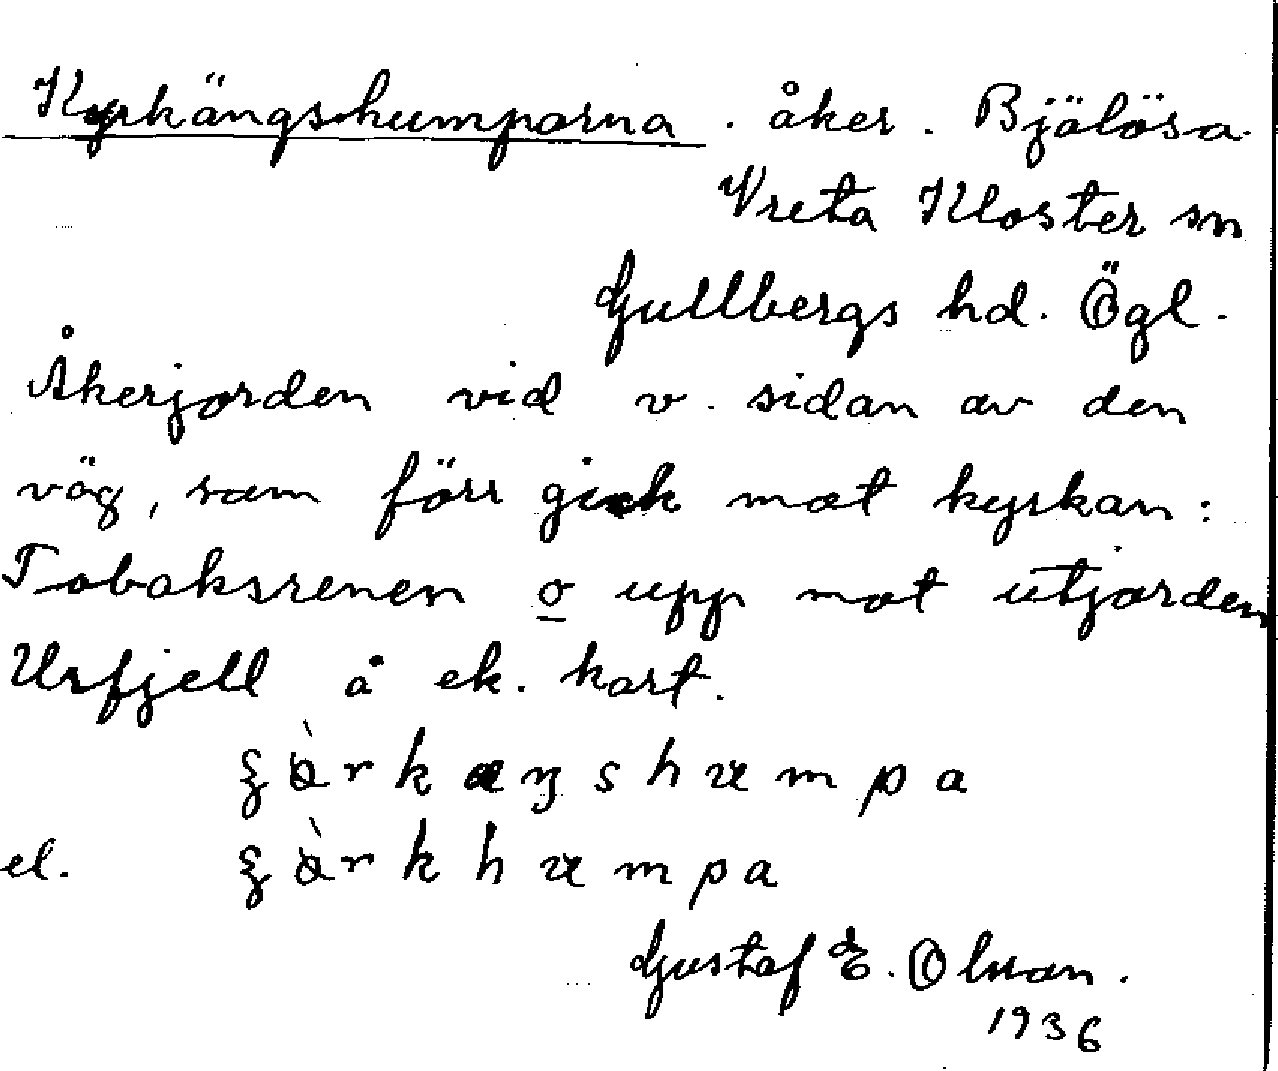 Kyrkängshumparna . åker . Bjälösa.
Vreta Kloster sn
Gullbergs hd. Ögl.
Åkerjorden vid v. sidan av den
väg, som förr gick mot kyrkan:
Tobaksrenen o upp mot utjorden
Ursfjell å ek. kart.
el.
Gustaf E. Olsson.
1936